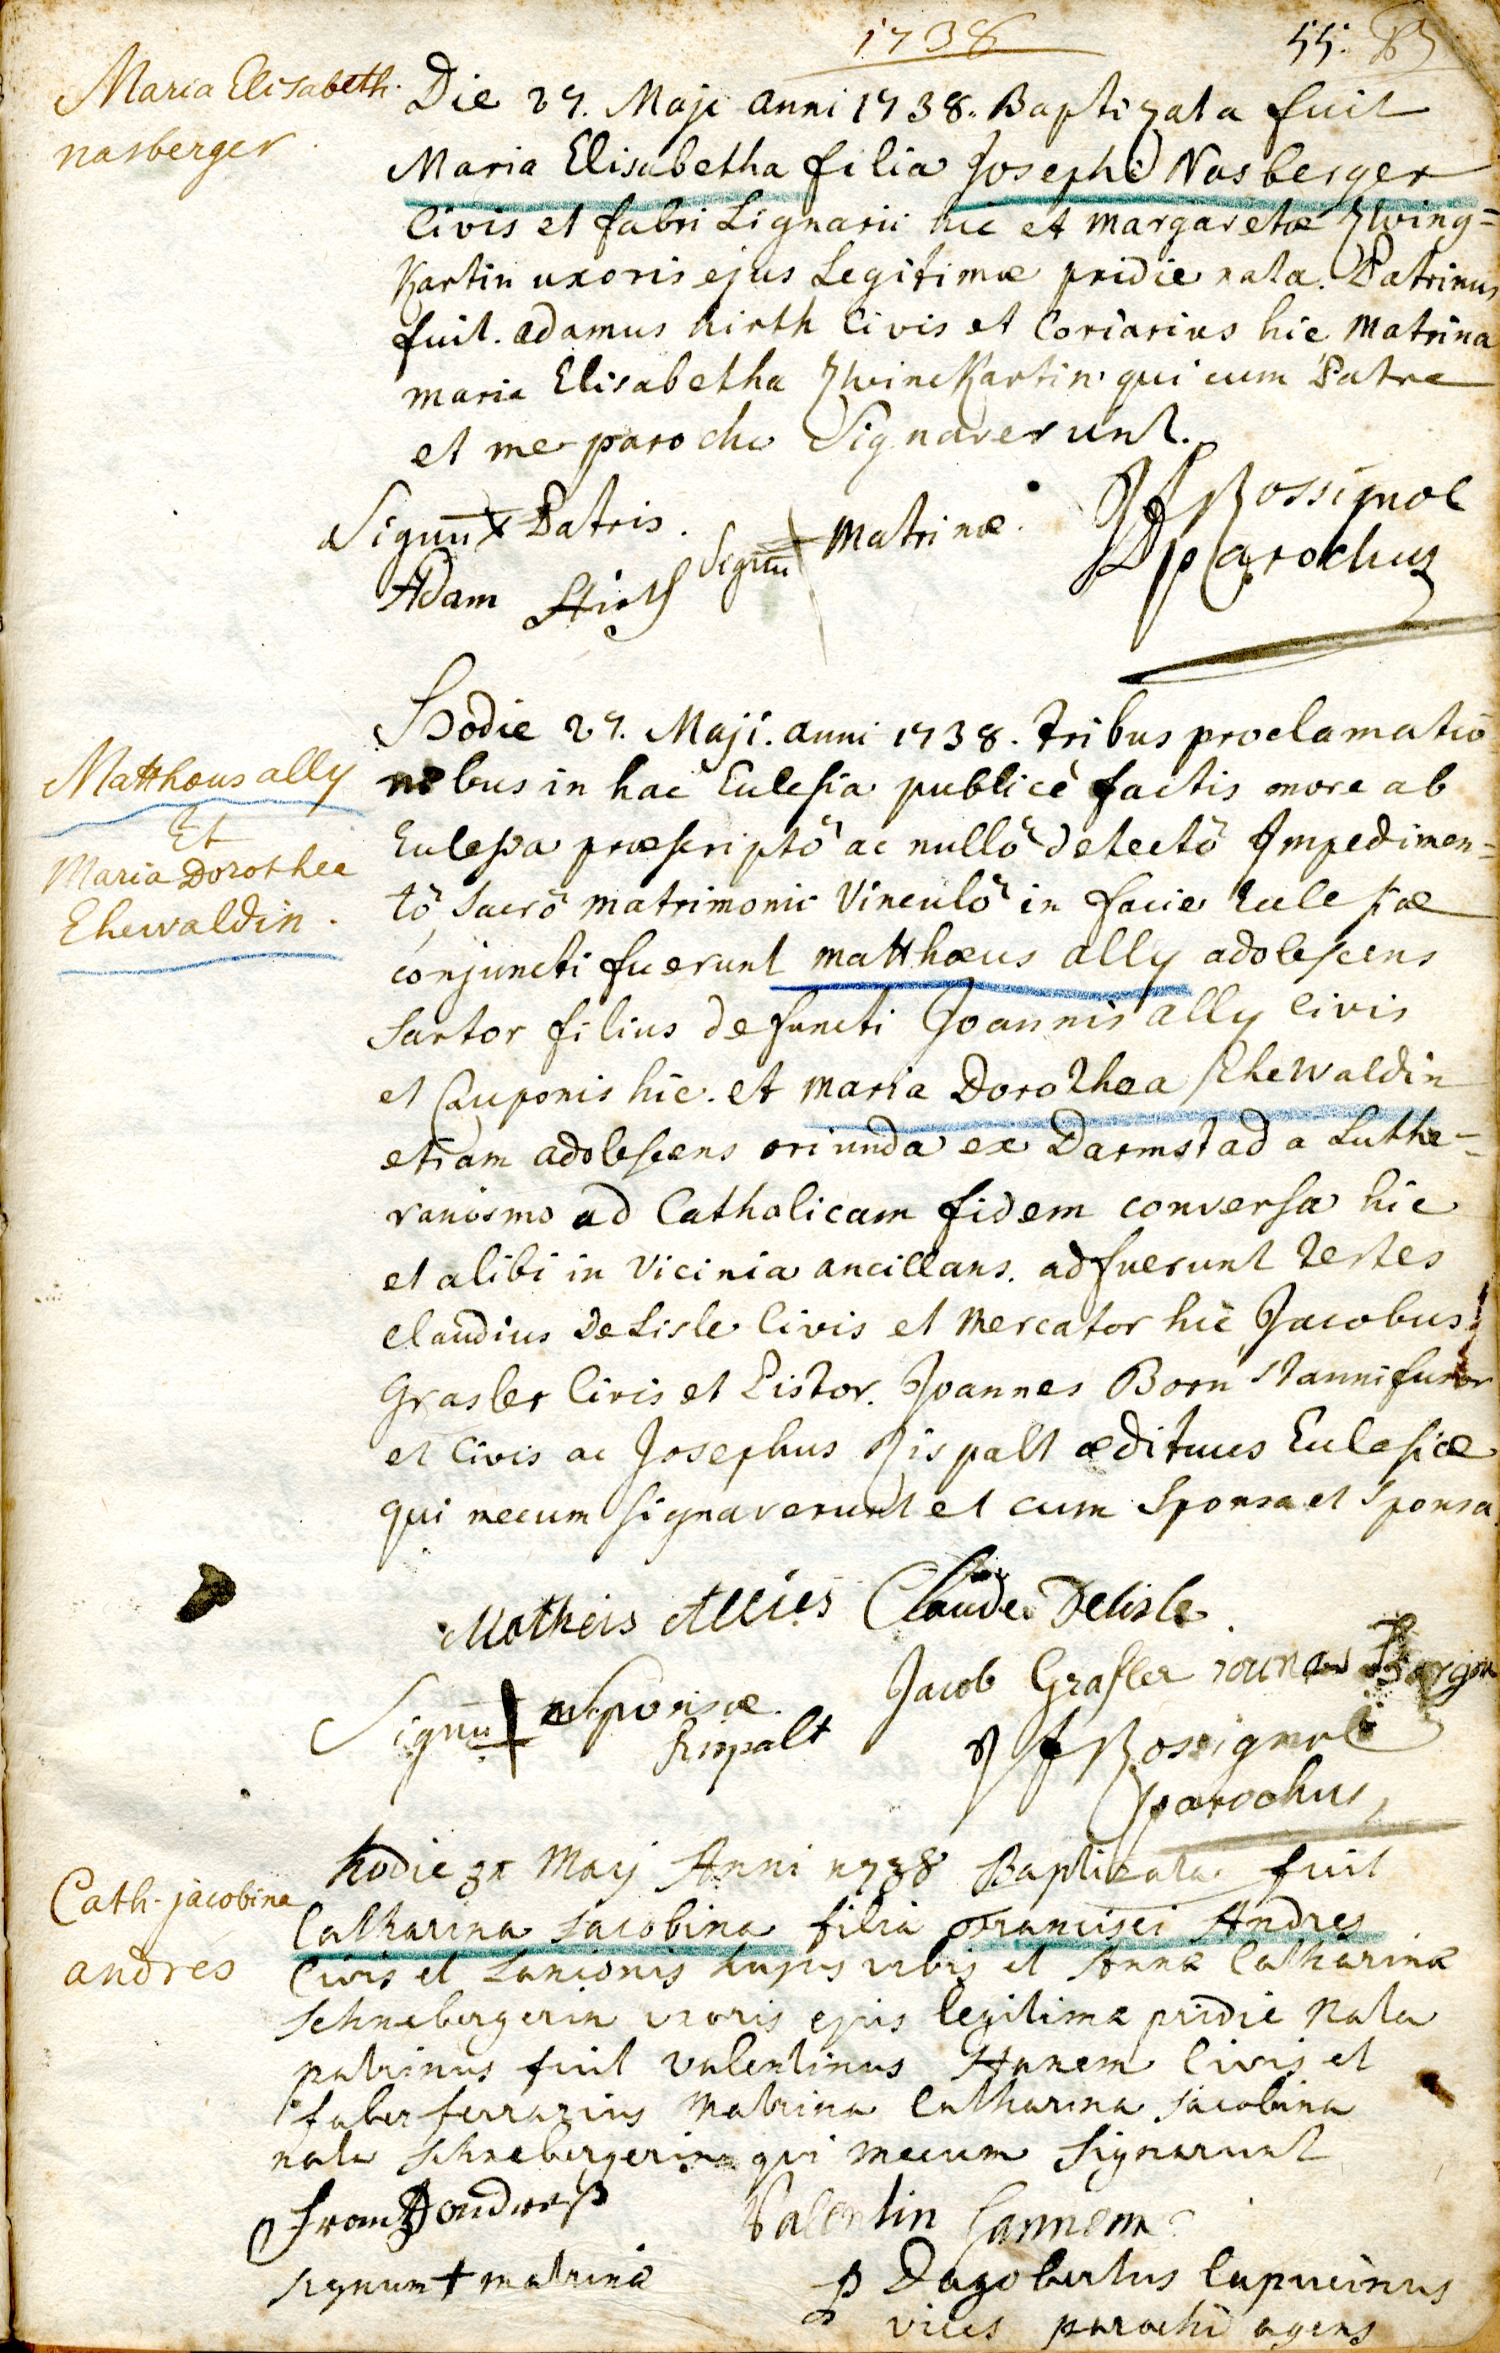 1738
55.
Maria Elisabeth.
nasberger
Die 27. Maji anni 1738. Baptizata fuit
Maria Elisabetha filia Josephi Nasberger
Civis et fabri Lignarii hic et margaretæ Zwing=
Kartin uxoris ejus Legitimæ pridie nata. Patrinus
fuit. adamus hirth Civis et Coriarius hic Matrina
maria Elisabetha Zwinckartin qui cum Patre
et me parocho Signaverunt.
Signū x Patris.
Signū Matrinæ.
Adam Hirth
JJ Rossignol
parochus
Matthæus ally
Et
Maria Dorothea
Ehewaldin.
Hodie 27. Maji. anni 1738. tribus proclamatio
nibus in hac Eclesia publicè factis more ab
Eclesia præscriptô ac nullô detectô Impedimen=
tô sacrô matrimonii Vinculô in facie Eclesiæ
conjuncti fuerunt matthæus ally adolescens
sartor filius defuncti Joannis ally Civis
et Cauponis hic. et maria Dorothea Ehewaldin
etiam adolescens oriunda ex Darmstad a Luthe=
ranismo ad Catholicam fidem conversa hic
et alibi in Vicinia ancillans. adfuerunt testes
Claudius Delisle Civis et Mercator hic Jacobus
Grasler Civis et Pistor. Joannes Born Stannifusor
et Civis ac Josephus Rispalt ædituus Eclesiæ
qui mecum signaverunt et cum Sponso et Sponsa
Matheis Allies Claude Delisle
Jacob Grasler
Signū + Sponsæ.
Rispalt
JJ Rossignol
parochus
Cath. jacobina
andrés
hodie 31 Maij Anni 1738 Baptizata fuit
Catharina Jacobina filia Francisci Andres
Civis et Lanionis hujus urbis et Annæ Catharinæ
Schnebergerin uxoris ejus legitimæ pridie Nata
patrinus fuit Valentinus Hanem Civis et
faber ferrarius Matrina Catharina Jacobina
nata Schnebergerin qui mecum signarunt
Frantz andreß
Valentin
signum + matrinæ
p Dagobertus Capucinus
vices parochi agens